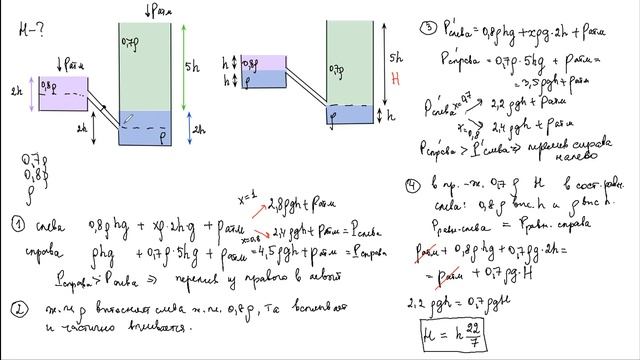 H-?
↓Pатм
↓Pатм
0,7ρ
5h
2h
0,8ρ
2h
ρ
2h
h
0,8ρ
h
0,7ρ
5h
H
h
0,7ρ
0,8ρ
ρ
① слева 0,8ρhg + xρ·2hg + Pатм
x=1 2,8ρgh + Pатм
x=0,8 2,4ρgh + Pатм = Pслева
справа ρhg + 0,7ρ·5hg + Pатм = 4,5ρgh + Pатм = Pсправа
Pсправа > Pслева ⇒ перелив из правого в левый
② ж. ρ вытеснит слева ж. 0,7ρ, та всплывает
и частично выливается.
③ P'слева = 0,8ρhg + xρg·2h + Pатм
P'справа = 0,7ρ·5hg + Pатм =
= 3,5ρgh + Pатм
P'слева
x=0,7 2,2ρgh + Pатм
x=0,8 2,4ρgh + Pатм
P'справа > P'слева ⇒ перелив справа
налево
④ в пр. - ж. 0,7ρ H в сост. равн.
слева: 0,8ρ выс. h и ρ выс. h.
Pравн. слева = Pравн. справа
Pатм + 0,8ρhg + 0,7ρg·2h =
= Pатм + 0,7ρg·H
2,2ρgh = 0,7ρgH
H = h 22/7